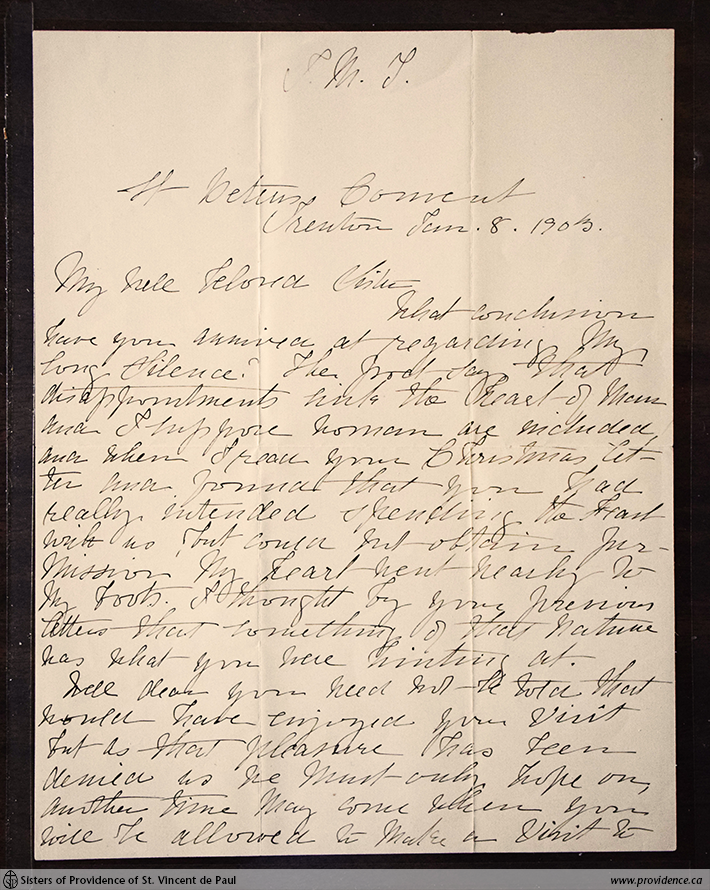 J. M. J.
St Peters Convent
Trenton Jan. 8. 1903.
My well beloved Sister
What conclusion
have you arrived at regarding My
long Silence? The poet say that
disappointments sink the heart of Man
and I suppose woman are included,
and when I read your Christmas let-
ter and found that you had
really intended spending the Feast
with us, but could not obtain per-
mission My heart went nearly to
My boots. I thought by your previous
letters that something of that nature
was what you were hinting at.
Well dear you need not be told that
would have enjoyed your Visit
but as that pleasure has been
denied us we must only hope on,
another time May come when you
will be allowed to Make a Visit to
Sisters of Providence of St. Vincent de Paul
www.providence.ca